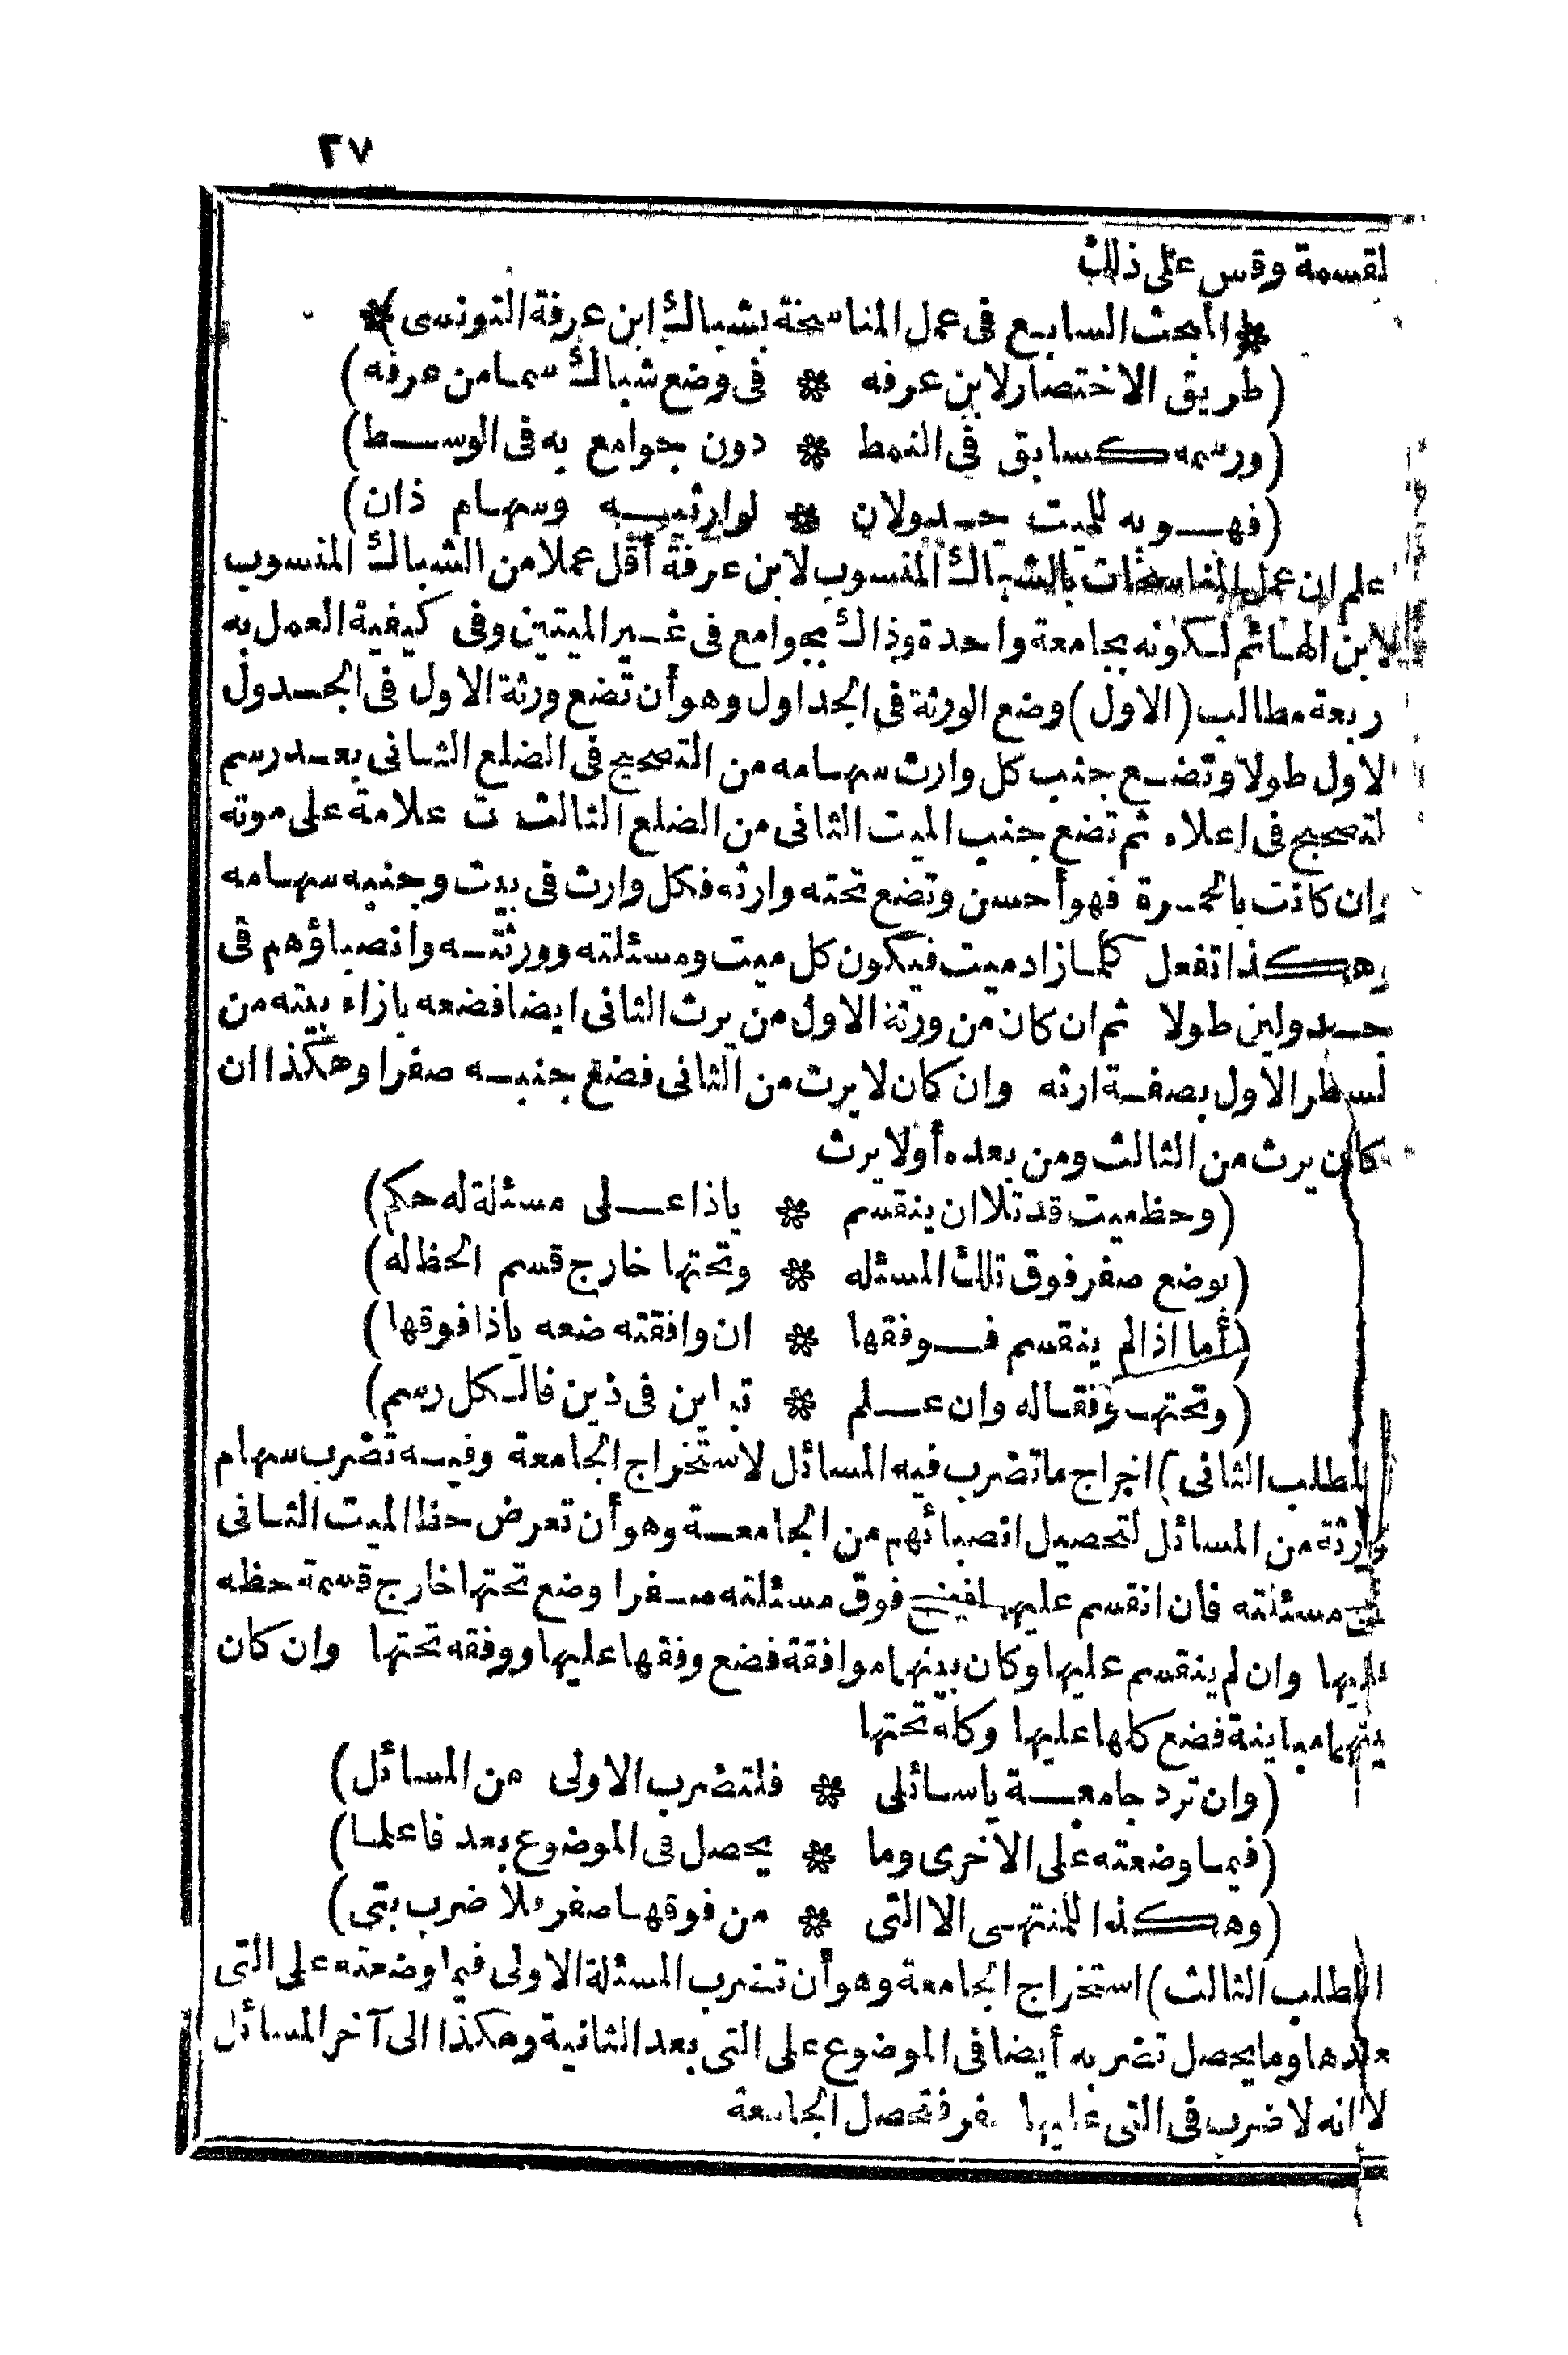 ٢٧
لقسمة وقس على ذلك
﴿المبحث السابع فى عمل المناسخة بشباك ابن عرفة التونسى﴾
(طريق الاختصار لابن عرفه * فى وضع شباك سما من عرفه)
(ورسمه كسابق فى النمط * دون جوامع به فى الوسط)
(فهو به للميت جدولان * لوارثيه وسهام ذان)
علم ان عمل المناسخات بالشباك المنسوب لابن عرفة أقل عملا من الشباك المنسوب
لابن الهائم لكونه بجامعة واحدة وذاك بجوامع فى غير الميتين وفى كيفية العمل به
ربعة مطالب (الاول) وضع الورثة فى الجداول وهو أن تضع ورثة الاول فى الجدول
لاول طولا وتضع جنب كل وارث سهامه من التصحيح فى الضلع الثانى بعد رسم
لتصحيح فى اعلاه ثم تضع جنب الميت الثانى من الضلع الثالث ت علامة على موته
وان كانت بالحمرة فهو أحسن وتضع تحته وارثه فكل وارث فى بيت وجنبه سهامه
وهكذا تفعل كلما زاد ميت فيكون كل ميت ومسئلته وورثته وانصباؤهم فى
جدولين طولا ثم ان كان من ورثة الاول من يرث الثانى ايضا فضعه بازاء بيته من
لسطر الاول بصفة ارثه وان كان لا يرث من الثانى فضع جنبه صفرا وهكذا ان
كان يرث من الثالث ومن بعده أولا يرث
(وحظ ميت قد تلا ان ينقسم * ياذا على مسئلة له حكم)
(بوضع صفر فوق تلك المسئله * وتحتها خارج قسم الحظ له)
(أما اذا لم ينقسم فوفقها * ان وافقته ضعه ياذا فوقها)
(وتحتها وفقا له وان علم * تباين فى ذين فالكل رسم)
المطلب الثانى) اخراج ما تضرب فيه المسائل لاستخراج الجامعة وفيه تضرب سهام
وارثة من المسائل لتحصيل انصبائهم من الجامعة وهو أن تعرض حظ الميت الثانى
على مسئلته فان انقسم عليها فضع فوق مسئلته صفرا وضع تحتها خارج قسمة حظه
عليها وان لم ينقسم عليها وكان بينهما موافقة فضع وفقها عليها ووفقه تحتها وان كان
بينهما مباينة فضع كلها عليها وكله تحتها
(وان ترد جامعة يا سائلى * فلتضرب الاولى من المسائل)
(فيما وضعته على الاخرى وما * يحصل فى الموضوع بعد فاعلما)
(وهكذا للمنتهى الا التى * من فوقها صفر فلا ضرب بتى)
المطلب الثالث) استخراج الجامعة وهو أن تضرب المسئلة الاولى فيما وضعته على التى
بعدها وما يحصل تضربه أيضا فى الموضوع على التى بعد الثانية وهكذا الى آخر المسائل
لا انه لا ضرب فى التى عليها صفر فتحصل الجامعة